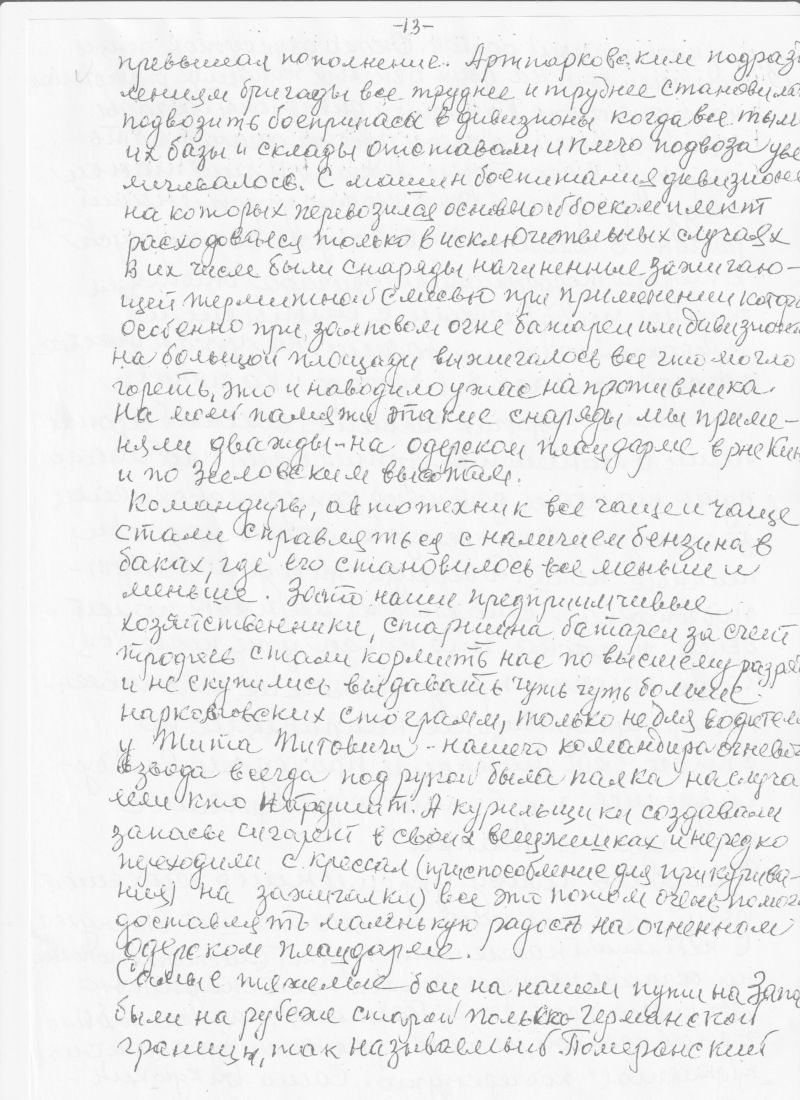 -13-
превышая пополнение. Артпарковским подразде
лениям бригады все труднее и труднее становилось
подвозить боеприпасы в дивизионы когда все тылы
их базы и склады отставали и плечо подвоза уве
личивалось. С машин боепитания дивизионов
на которых перевозился основной боекомплект
расходовался только в исключительных случаях
в их числе были снаряды начиненные зажигаю-
щей термитной смесью при применении которых
особенно при залповом огне батареи или дивизиона
на большой площади выжигалось все что могло
гореть, это и наводило ужас на противника.
На моей памяти такие снаряды мы приме-
няли дважды - на одерском плацдарме в р-не Кин
и по Зееловским высотам.
Командиры, автотехник все чаще и чаще
стали справляться с наличием бензина в
баках, где его становилось все меньше и
меньше. Зато наши предприимчивые
хозяйственники, старшина батареи за счет
трофеев стали кормить нас по высшему разряду
и не скупились выдавать чуть чуть больше
наркомовских сто грамм, только не для водителей
у Тита Титовича - нашего командира огневого
взвода всегда под рукой была палка на случай
если кто нарушит. А курильщики создавали
запасы сигарет в своих вещмешках и нередко
переходили с кресал (приспособление для прикурива-
ния) на зажигалки) все это потом очень помогло
доставлять маленькую радость на огненном
Одерском плацдарме.
Самые тяжелые бои на нашем пути на Запад
были на рубеже старой польско-германской
границы, так называемый Померанский